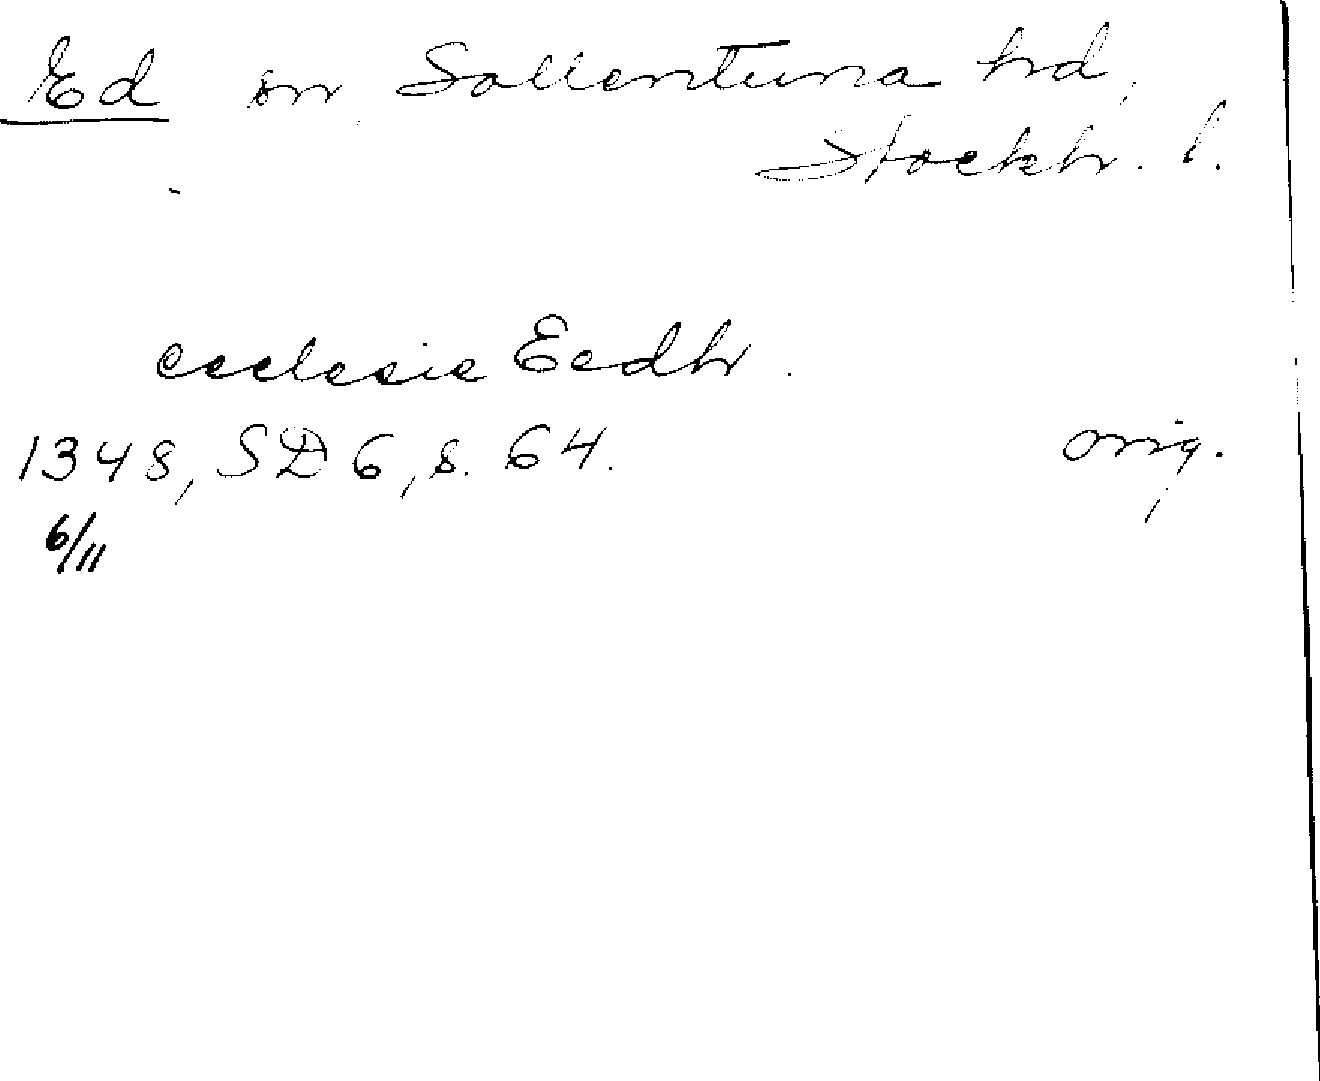 Ed sn, Sollentuna hd,
Stockh. l.
ecclesie Eedh.
1348, SD 6, s. 64. orig.
6/11